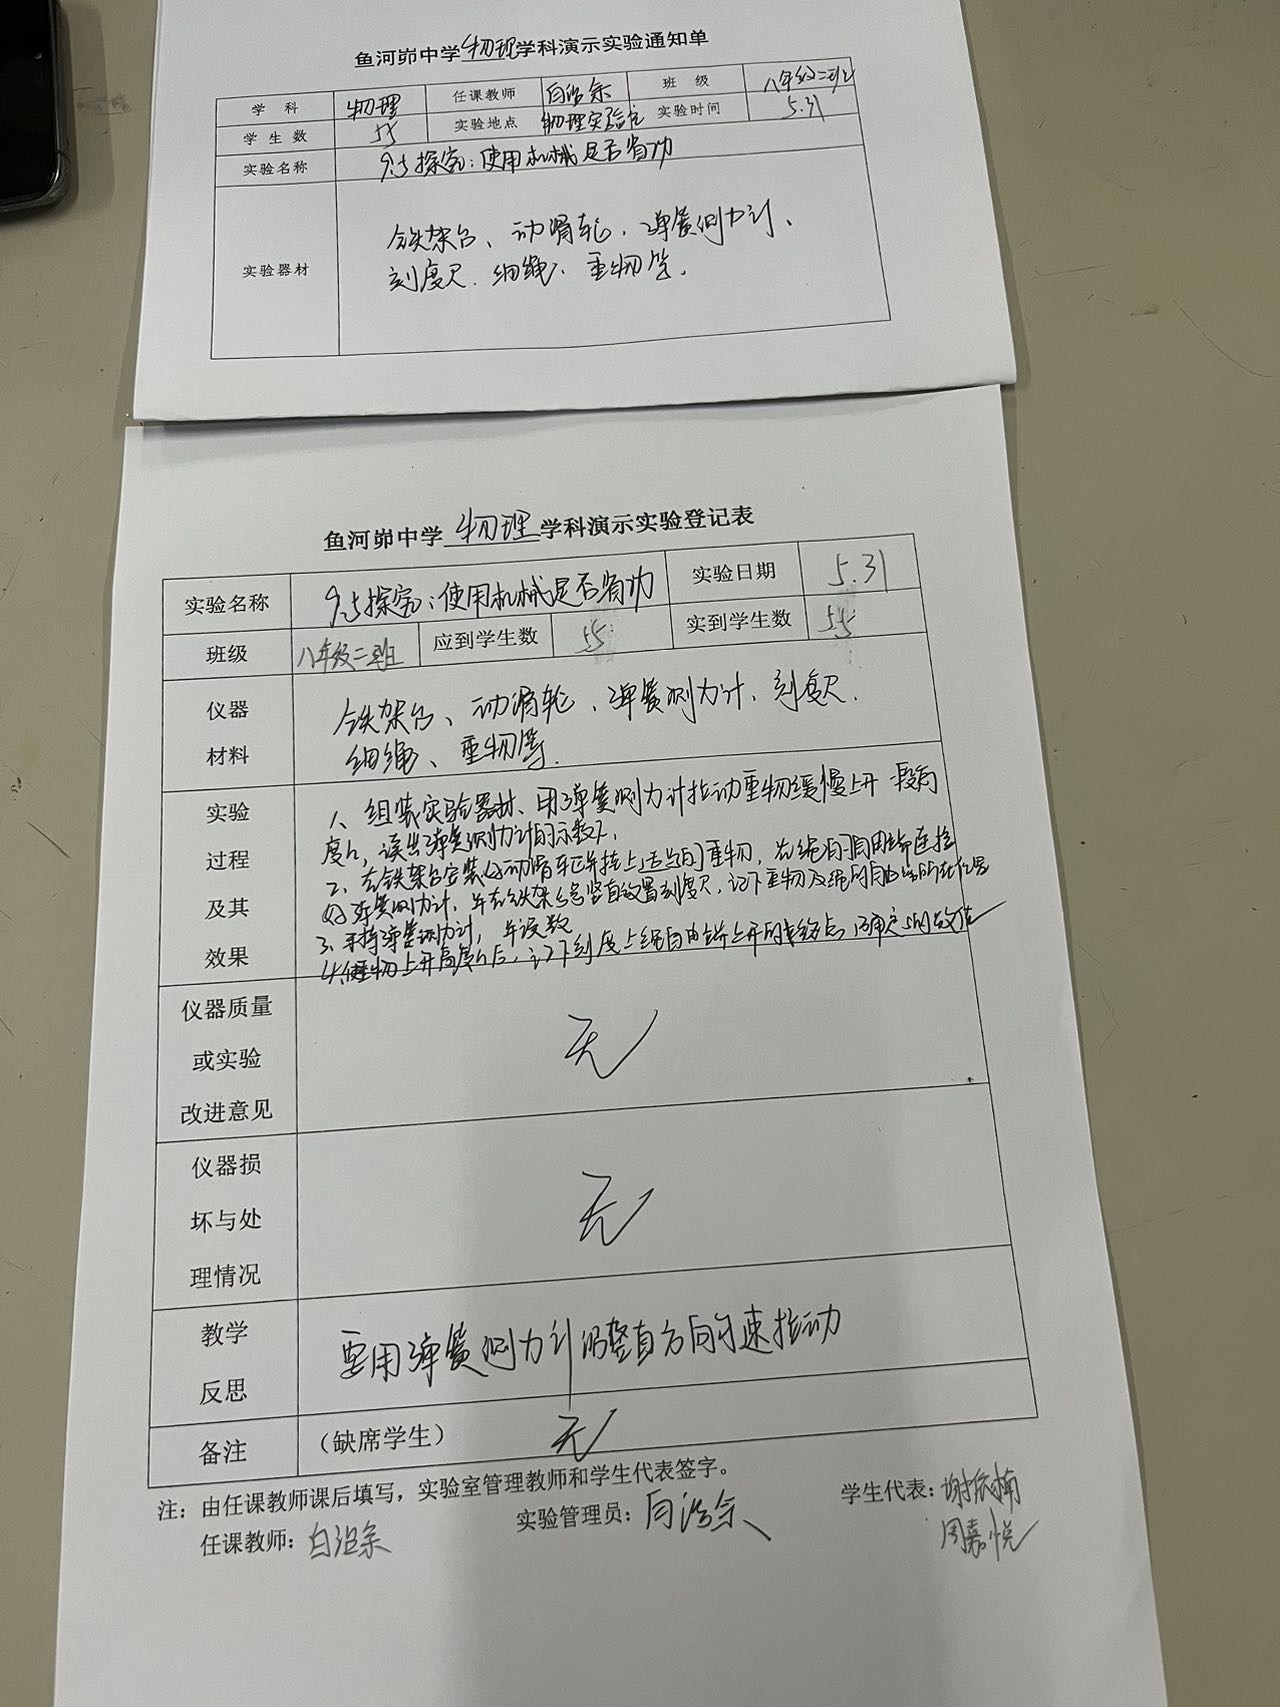 鱼河峁中学物理学科演示实验通知单
学 科 物理 任课教师 白治余 班 级 八年级二班
学 生 数 55 实验地点 物理实验室 实验时间 5.31
实验名称 9.5探究:使用机械是否省功
实验器材 铁架台、动滑轮、弹簧测力计、
刻度尺、细绳、重物等.
鱼河峁中学物理学科演示实验登记表
实验名称 9.5探究:使用机械是否省功 实验日期 5.31
班级 八年级二班 应到学生数 55 实到学生数 55
仪器材料 铁架台、动滑轮、弹簧测力计、刻度尺.
细绳、重物等.
实验过程及其效果 1、组装实验器材、用弹簧测力计拉动重物缓慢上升一段高
度h,读出弹簧测力计的示数F.
2、在铁架台安装好动滑轮并挂上适当的重物,在绳的自由端连接
好弹簧测力计,并在铁架台竖直放置刻度尺,记下重物及绳的自由端所在位置
3、手持弹簧测力计,并读数
4、使重物上升高度h后,记下刻度上绳自由端上升的终点,确定S的数值
仪器质量或实验改进意见 无
仪器损坏与处理情况 无
教学反思 要用弹簧测力计沿竖直方向匀速拉动
备注 (缺席学生) 无
注:由任课教师课后填写,实验室管理教师和学生代表签字。
任课教师:白治余 实验管理员:白治余 学生代表:谢
周嘉悦